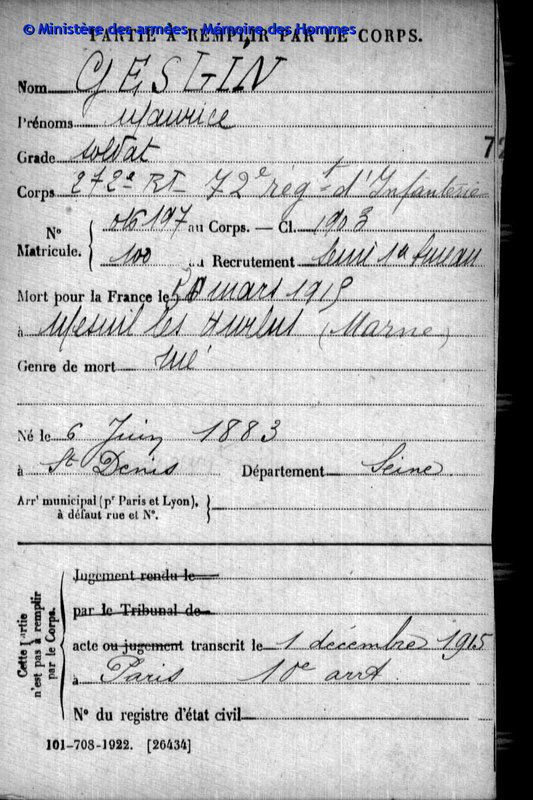 © Ministère des armées - Mémoire des Hommes
PARTIE À REMPLIR PAR LE CORPS.
Nom GESLIN
Prénoms Maurice
Grade soldat
72
Corps 272e RI 72e régt d'Infanterie
N° Matricule. 016197 au Corps. — Cl. 1903
100 au Recrutement Seine 1er bureau
Mort pour la France le mars 1915
à Mesnil les Hurlus (Marne)
Genre de mort tué
Né le 6 Juin 1883
à St Denis Département Seine
Arrt municipal (pr Paris et Lyon),
à défaut rue et N°.
Cette partie n'est pas à remplir par le Corps.
Jugement rendu le
par le Tribunal de
acte ou jugement transcrit le 1 décembre 1915
à Paris 10e arrt.
N° du registre d'état civil
101-708-1922. [26434]